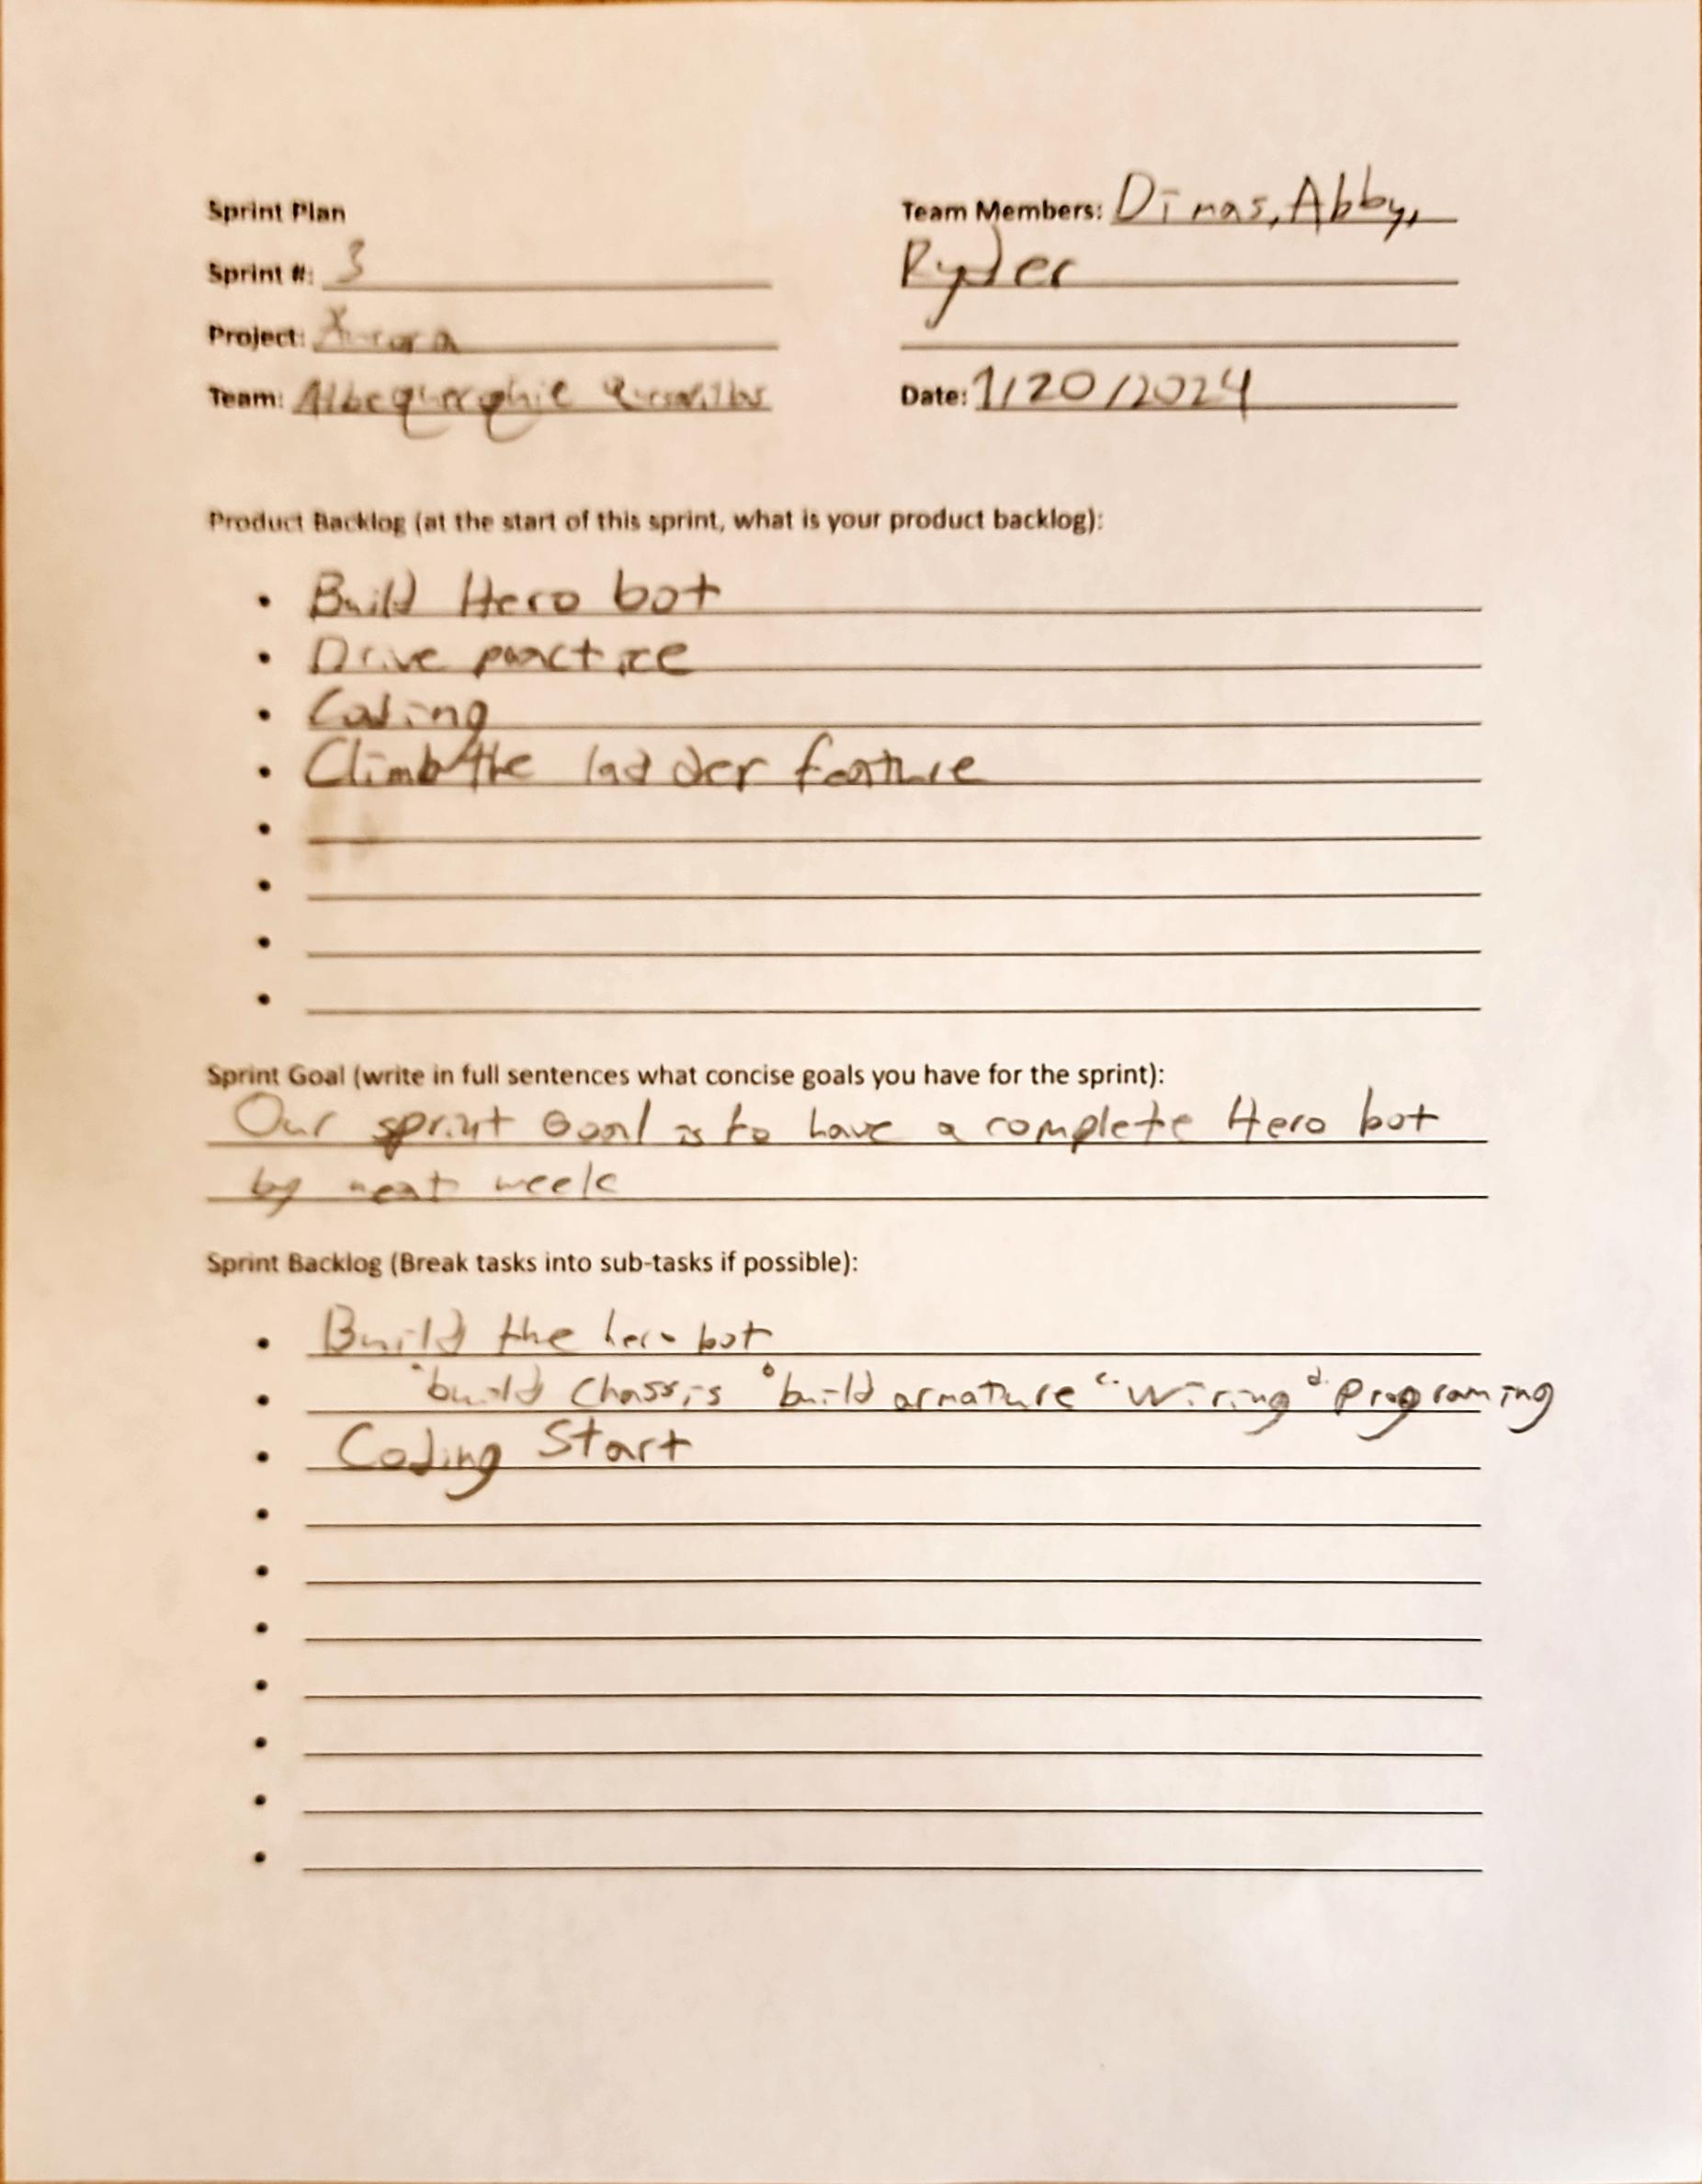 Sprint Plan
Team Members: Dimas, Abby,
Sprint #: 3
Ryder
Project:
Team:
Date: 1/20/2024
Product Backlog (at the start of this sprint, what is your product backlog):
• Build Hero bot
• Drive practice
• Coding
• Climb the ladder feature
•
•
•
•
Sprint Goal (write in full sentences what concise goals you have for the sprint):
Our sprint Goal is to have a complete Hero bot
by next week
Sprint Backlog (Break tasks into sub-tasks if possible):
• Build the hero bot
• build Chassis build armature c. Wiring d. Programing
• Coding Start
•
•
•
•
•
•
•